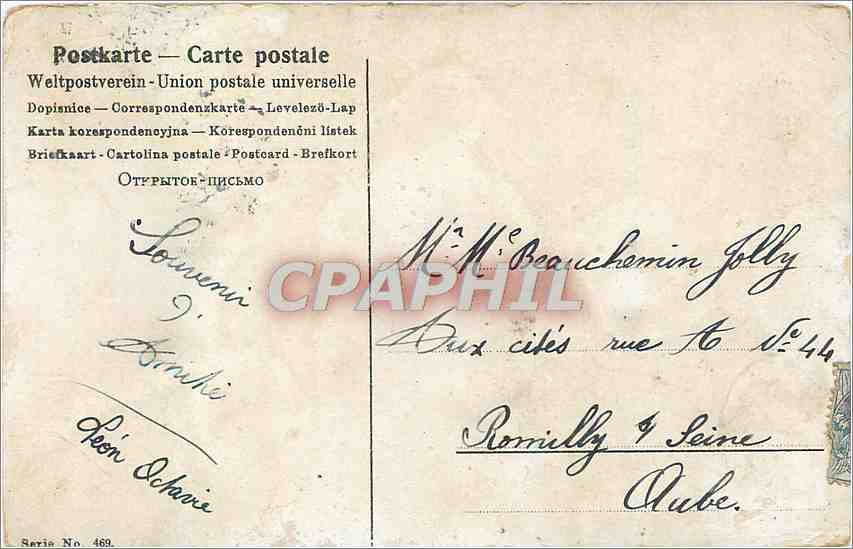 Postkarte — Carte postale
Weltpostverein - Union postale universelle
Dopisnice — Correspondenzkarte — Levelezö-Lap
Karta korespondencyjna — Korespondenční lístek
Briefkaart - Cartolina postale - Postcard - Brefkort
Открытое-письмо
Souvenir
d'
Amitié
Léon Octavie
Mr Me Beauchemin Jolly
Aux cités rue A No 44
Romilly s/ Seine
Aube.
CPAPHIL
Serie No. 469.